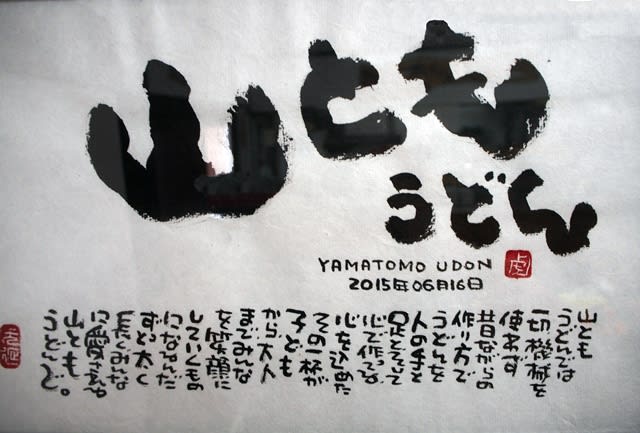 山とも
うどん
YAMATOMO UDON
2015年06月16日
虎
山とも
うどんでは
一切機械を
使わず
昔ながらの
作り方で
うどんを
人の手と
足とでいて
心で作ってな
心を込めた
その一杯が
子ども
から大人
までみんな
を笑顔に
していくもの
になるんだ
ずっと太く
長くみんな
に愛される
山とも。
うどんど。